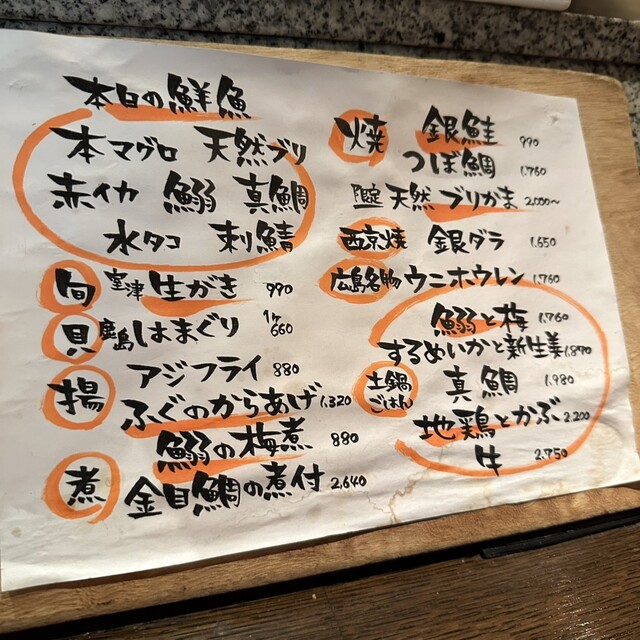 本日の鮮魚
本マグロ 天然ブリ
赤イカ 鰯 真鯛
水タコ 刺鯖
旬 室津 生がき 990
貝 鹿島 はまぐり 1ヶ 660
揚 アジフライ 880
ふぐのからあげ 1,320
煮 鰯の梅煮 880
金目鯛の煮付 2,640
焼 銀鮭 990
つぼ鯛 1,760
限定 天然ブリかま 2,000〜
西京焼 銀ダラ 1,650
広島名物 ウニホウレン 1,760
土鍋ごはん 鰯と梅 1,760
するめいかと新生姜 1,870
真鯛 1,980
地鶏とかぶ 2,200
牛 2,750